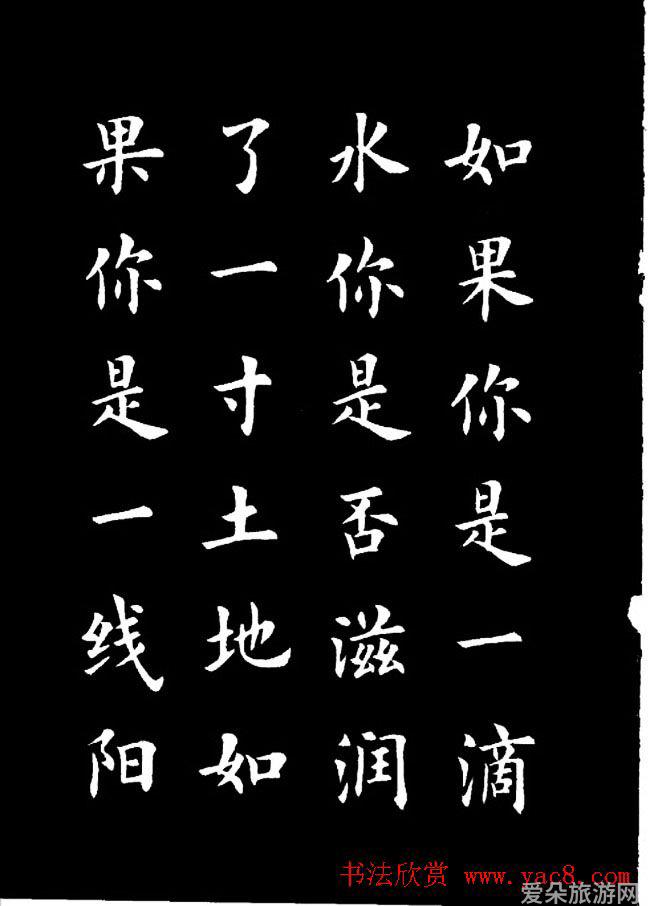 如果你是一滴
水你是否滋润
了一寸土地如
果你是一线阳
书法欣赏 www.yac8.com
爱朵旅游网